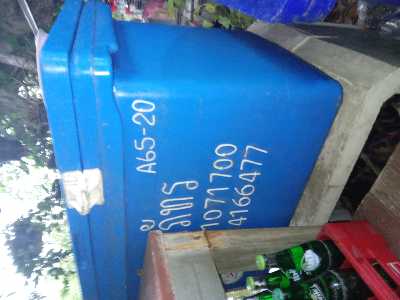 A65-20
ภัทร
1071700
4166477